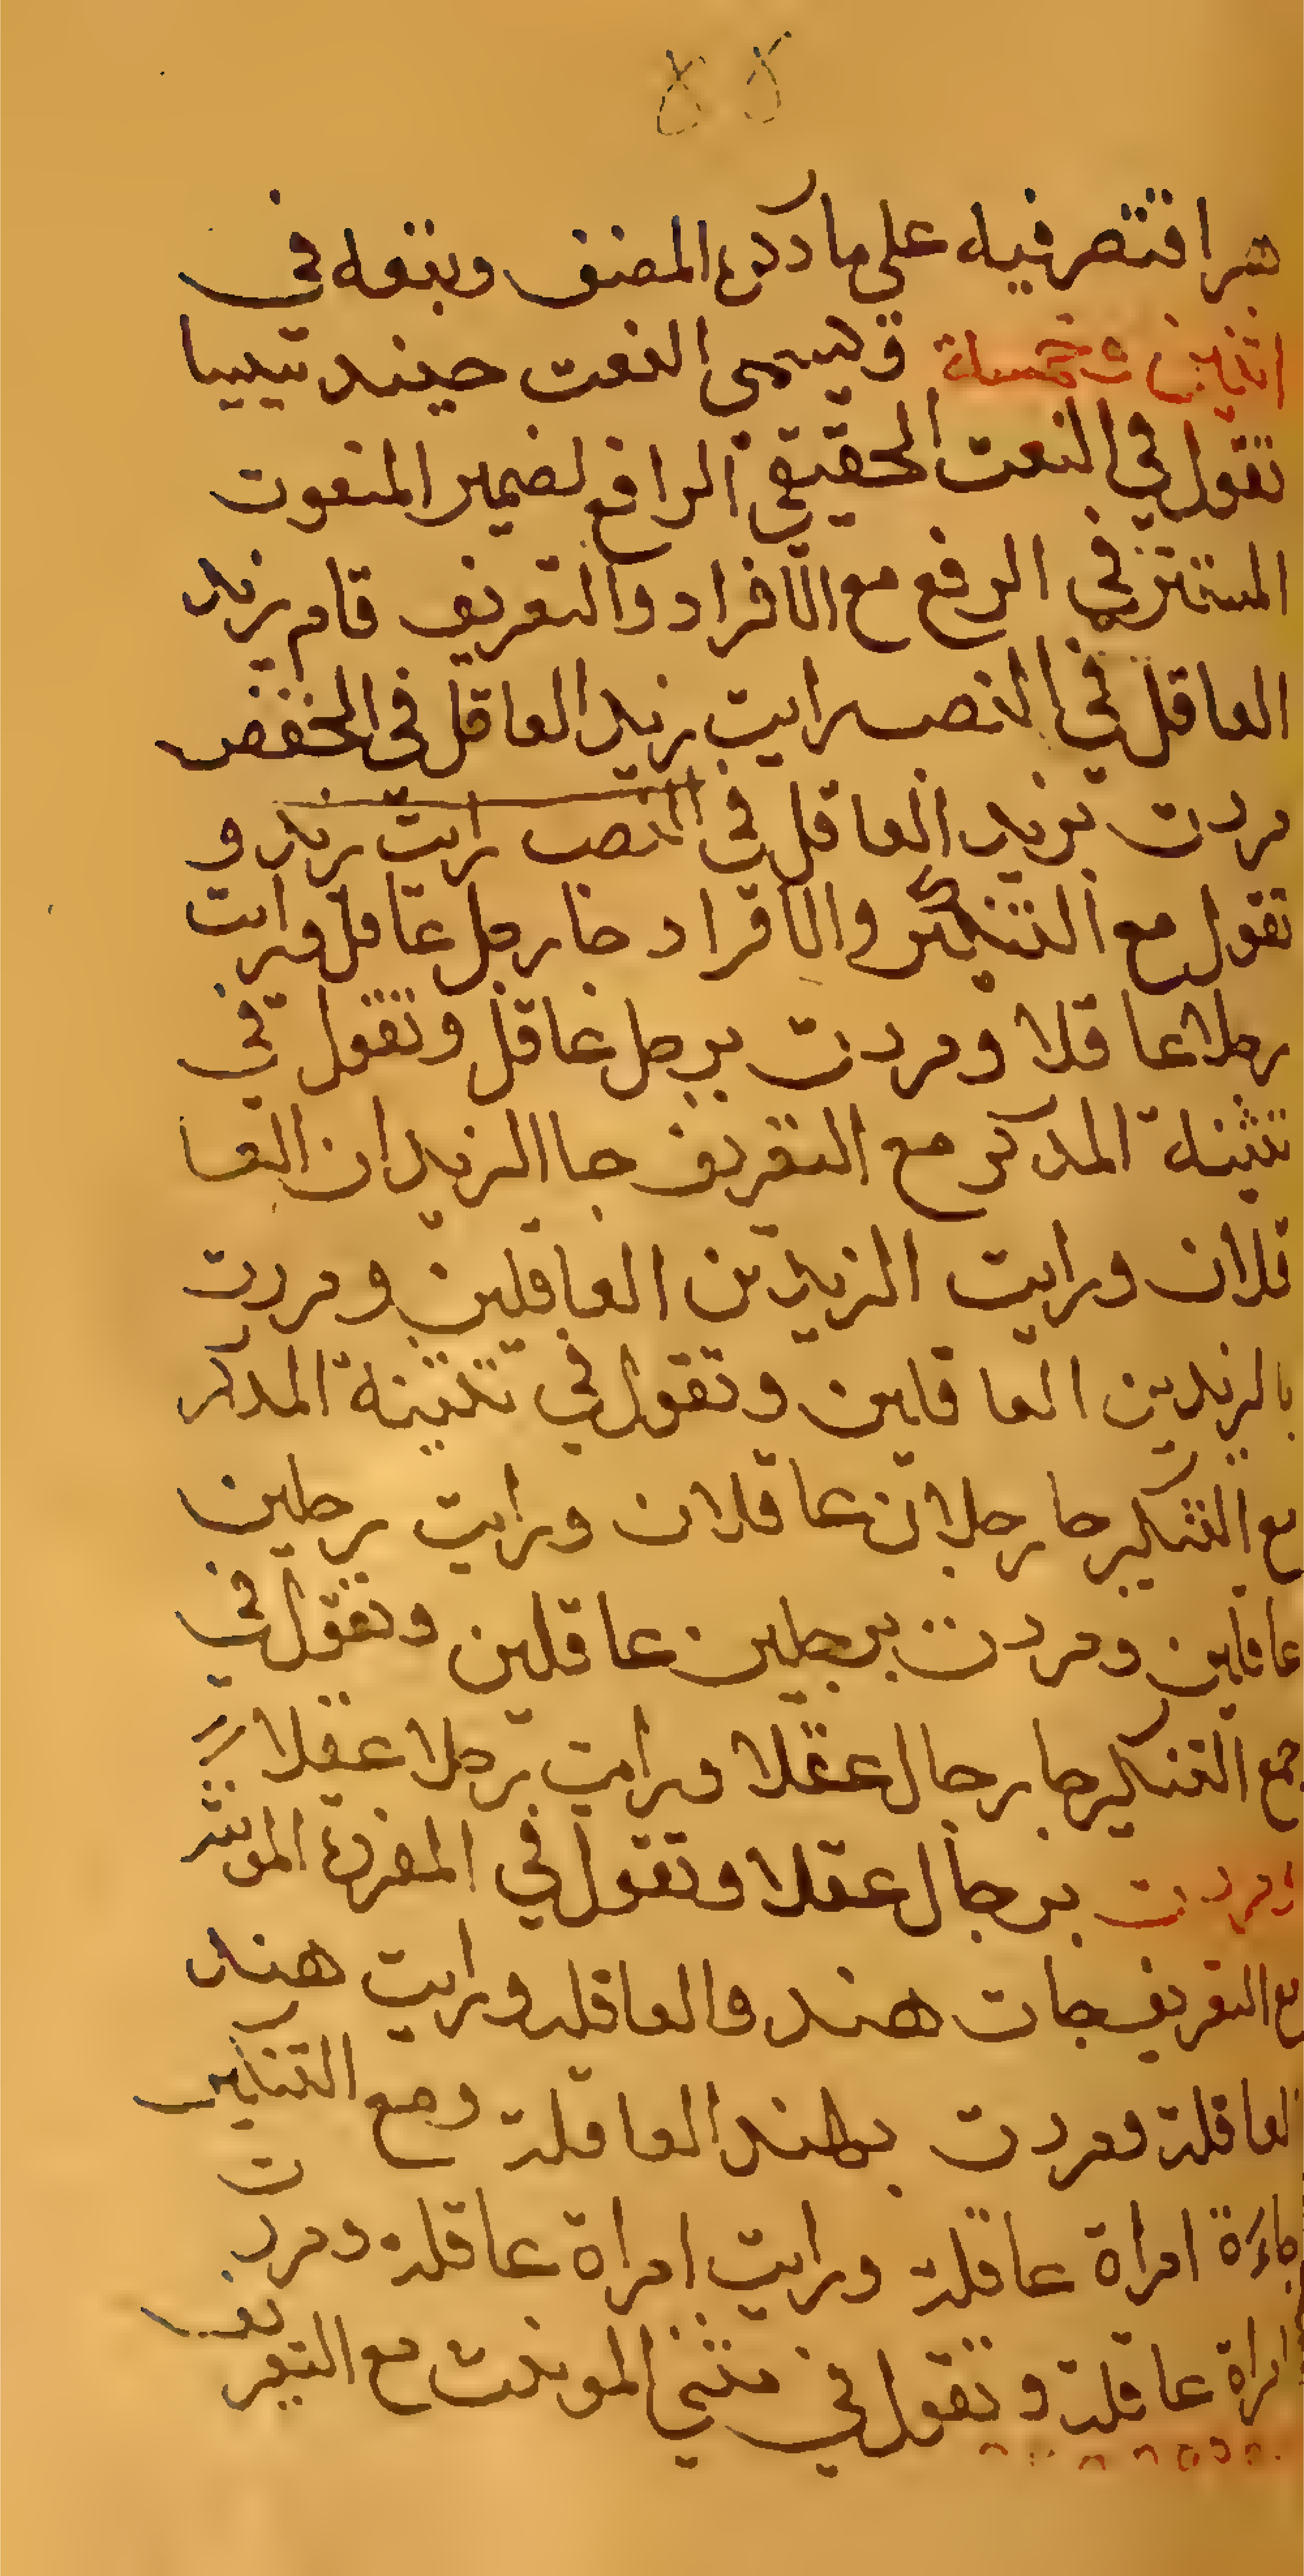 اقتصر فيه على ما ذكره المصنف ويتبعه في
اثنين من خمسة ويسمى النعت حينيذ سببيا
تقول في النعت الحقيقي الرافع لضمير المنعوت
المستتر في الرفع مع الافراد والتعريف قام زيد
العاقل في النصب رايت زيدا العاقل في الخفض
مررت بزيد العاقل في النصب رايت زيد و
تقول مع التنكير والافراد جا رجل عاقل ورايت
رجلا عاقلا ومررت برجل عاقل وتقول في
تثنية المذكر مع التعريف جا الزيدان العا
قلان ورايت الزيدين العاقلين ومررت
بالزيدين العاقلين وتقول في تثنية المذكر
مع التنكير جا رجلان عاقلان ورايت رجلين
عاقلين ومررت برجلين عاقلين وتقول في
جمع التنكير جا رجال عقلا ورايت رجلا عقلا
ومررت برجال عقلا وتقول في المفردة المونث
مع التعريف جات هند والعاقلة ورايت هند
العاقلة ومررت بهند العاقلة ومع التنكير
جاءة امراة عاقلة ورايت امراة عاقلة ومررت
امراة عاقلة وتقول في مثنى المونث مع التعريف